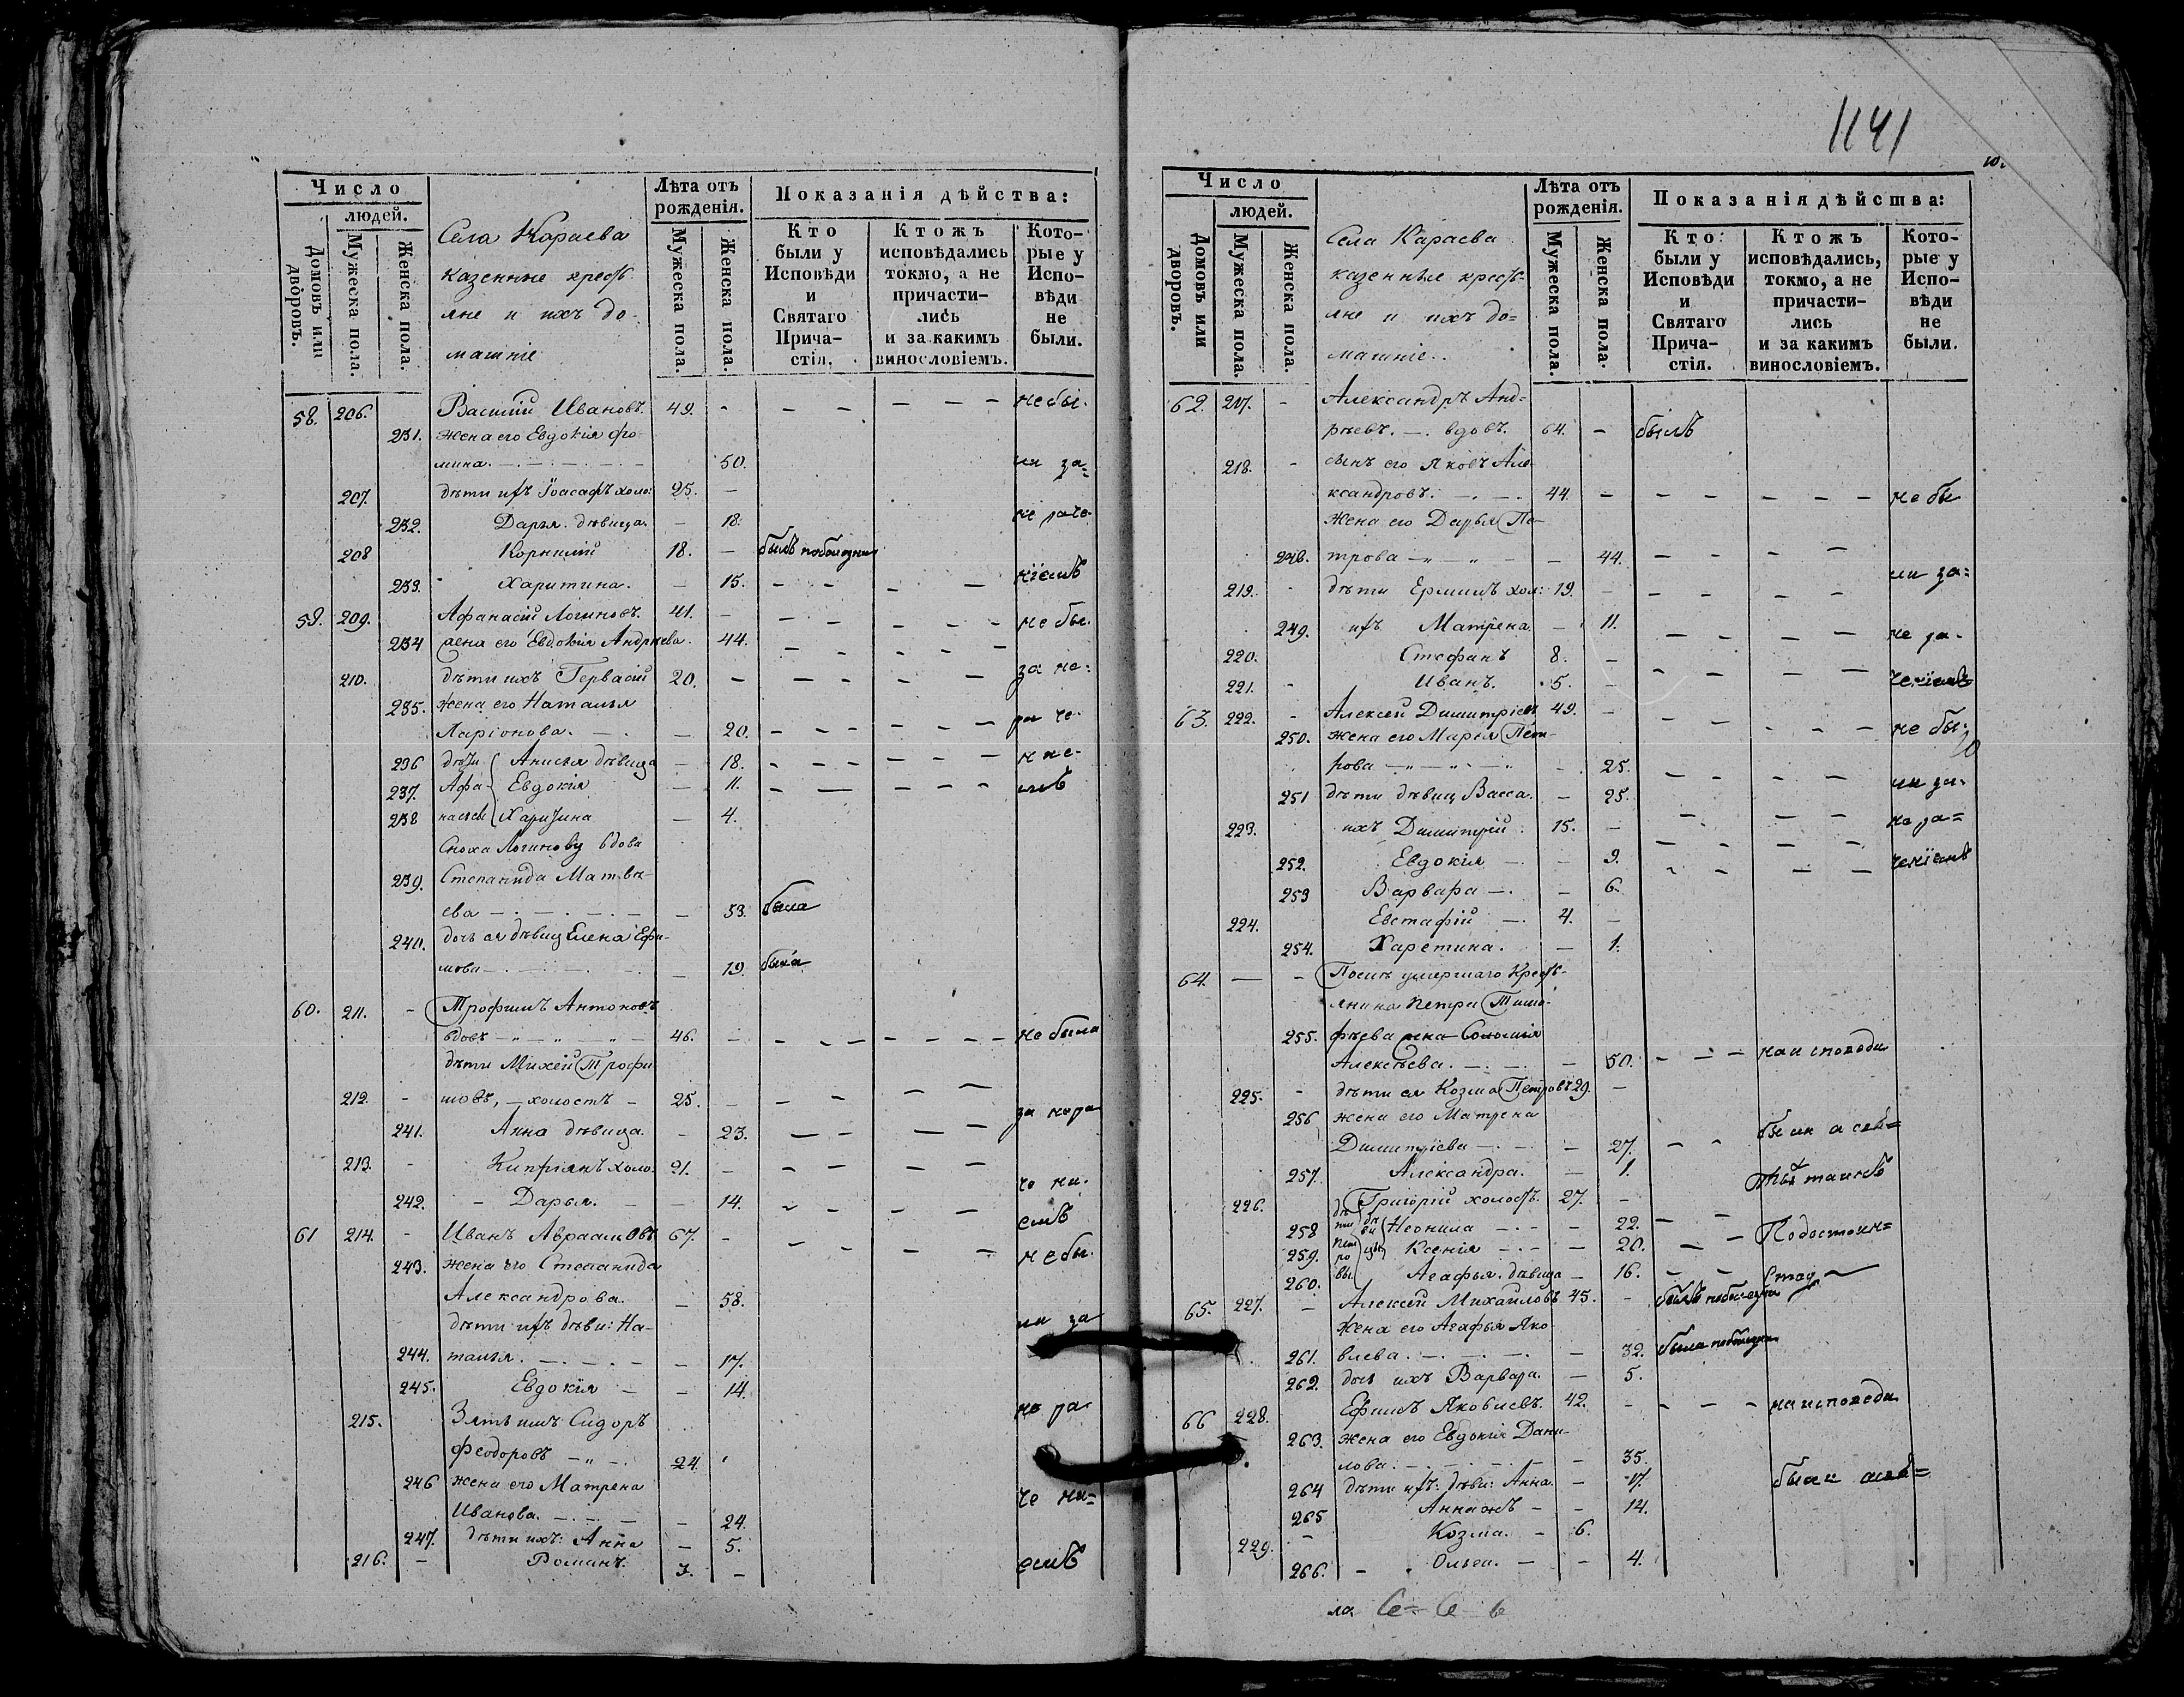 Число
людей.
Домовъ или дворовъ.
Мужеска пола.
Женска пола.
Села Караева
казенные крест
яне и ихъ до-
машніе
Лѣта отъ рожденія.
Мужеска пола.
Женска пола.
Показанія дѣйства:
Кто были у Исповѣди и Святаго Прича-стія.
Ктожъ исповѣдались токмо, а не причасти-лись и за какимъ винословіемъ.
Кото-рые у Испо-вѣди не были.
58. 206. Василій Ивановъ. 49. - - - - - - не бы-
231. жена его Евдокія Фо-
мина. 50. ли за-
207. дѣти ихъ Іоасафъ холо: 25. -
232. Дарья. дѣвица. - 18. не раче-
208 Корнилій 18. - былъ по болезни
233. Харитина. - 15. - - - ніемъ
59. 209. Афанасій Логиновъ. 41. - - - - - - не бы-
234 жена его Евдокія Андреева. 44. - - - - -
210. дѣти ихъ Гервасій 20. - - - - - за не-
235. жена его Наталья
Ларіонова. - 20. - - - - - - ра че-
236 дѣти Анисья дѣвица - 18. - - - - - - ние-
237. Афа- Евдокія - 11. - - - - - мъ
238 насьевы Харитина - 4.
Сноха Логинову вдова
239. Степанида Матвѣ-
ева - 53. была
240. дочь ея дѣвиц Елена Ефи-
мова - 19. была
60. 211. - Трофимъ Антоновъ
вдовъ 46. - - - - - - - не были
дѣти Михей Трофи-
212. - мовъ, - холостъ - 25. - - - - - за нера-
241. Анна дѣвица. - 23. - - - -
213. - Кипріянъ холо: 21. - - - - -
че ни-
242. - Дарья. - - 14. - - - - емъ
61 214. - Иванъ Авраамовъ 67. - - - - - не бы-
243. жена его Степанида
Александрова. - 58.
дѣти ихъ дѣви: На- ли за
244. талья. - 17.
245. Евдокія - - 14.
215. Зять имъ Сидоръ не ра-
Феодоровъ 24.
246 жена его Матрена
Иванова. - 24. че ни-
247. дѣти ихъ: Анна - 5.
216. - Романъ. 3. - емъ
1141
10.
Число
людей.
Домовъ или дворовъ.
Мужеска пола.
Женска пола.
Села Караева
казенные крест-
яне и ихъ до=
машніе.
Лѣта отъ рожденія.
Мужеска пола.
Женска пола.
Показанія дѣйства:
Кто были у Исповѣди и Святаго Прича-стія.
Ктожъ исповѣдались, токмо, а не причасти-лись и за какимъ винословіемъ.
Кото-рые у Испо-вѣди не были.
62. 217. - Александръ Анд=
рѣевъ. - вдовъ. 64. - былъ
218. - сынъ его Яковъ Але-
ксандровъ. 44. - - - - - - не бы
жена его Дарья Пе-
248. трова - 44. - - - -
ли за=
219. - дѣти Ермилъ хол: 19. - - - - -
249. ихъ Матрена. - 11. - - - - не ра-
220. Стефанъ 8. - - - - -
221. - Иванъ. 5. - ченіемъ
63. 222. - Алексей Димитріевъ 49. - - - - - - не бы-
250. жена его Марья Пет-
рова - 25. - - - - ли за-
251 дѣти дѣвиц Васса. - 25. - - -
223. ихъ Димитрій 15. - - - - - не ра=
252. Евдокія - - 9. - - - - ченіемъ
253 Варвара - - 6.
224. Евстафій - 4. -
254. Харетина. - 1.
64. - - Послѣ умершаго Крест-
янина Петра Тимо-
255. фѣева жена Соломія
Алексѣева. - 50. - - - на исповеди
225. - дѣти ея Козма Петровъ 29. -
256 жена его Матрена
Димитріева - 27. - - были а свѣ=
257. Александра. - 1. тыхъ таинъ
226. Григорій холостъ. 27. -
258 Неонила - - 22. - -
259. Ксенія - - 20. - - Недостоин=
260. Агафья. дѣвица - 16. - -
65. 227. - Алексей Михайловъ 45. - былъ по болезни
жена его Агафья Яко-
261. влева. - 32. была по болезни
262. дочь ихъ Варвара. - 5.
66 228. Ефимъ Яковлевъ. 42. - - - - на исповеди
263. жена его Евдокія Дани-
лова. - 35.
264 дѣти ихъ: дѣви: Анна. - 17. были а свѣ=
265 Анна жъ - - 14.
229. - Козма. - 6.
266. - Ольга. - - 4.